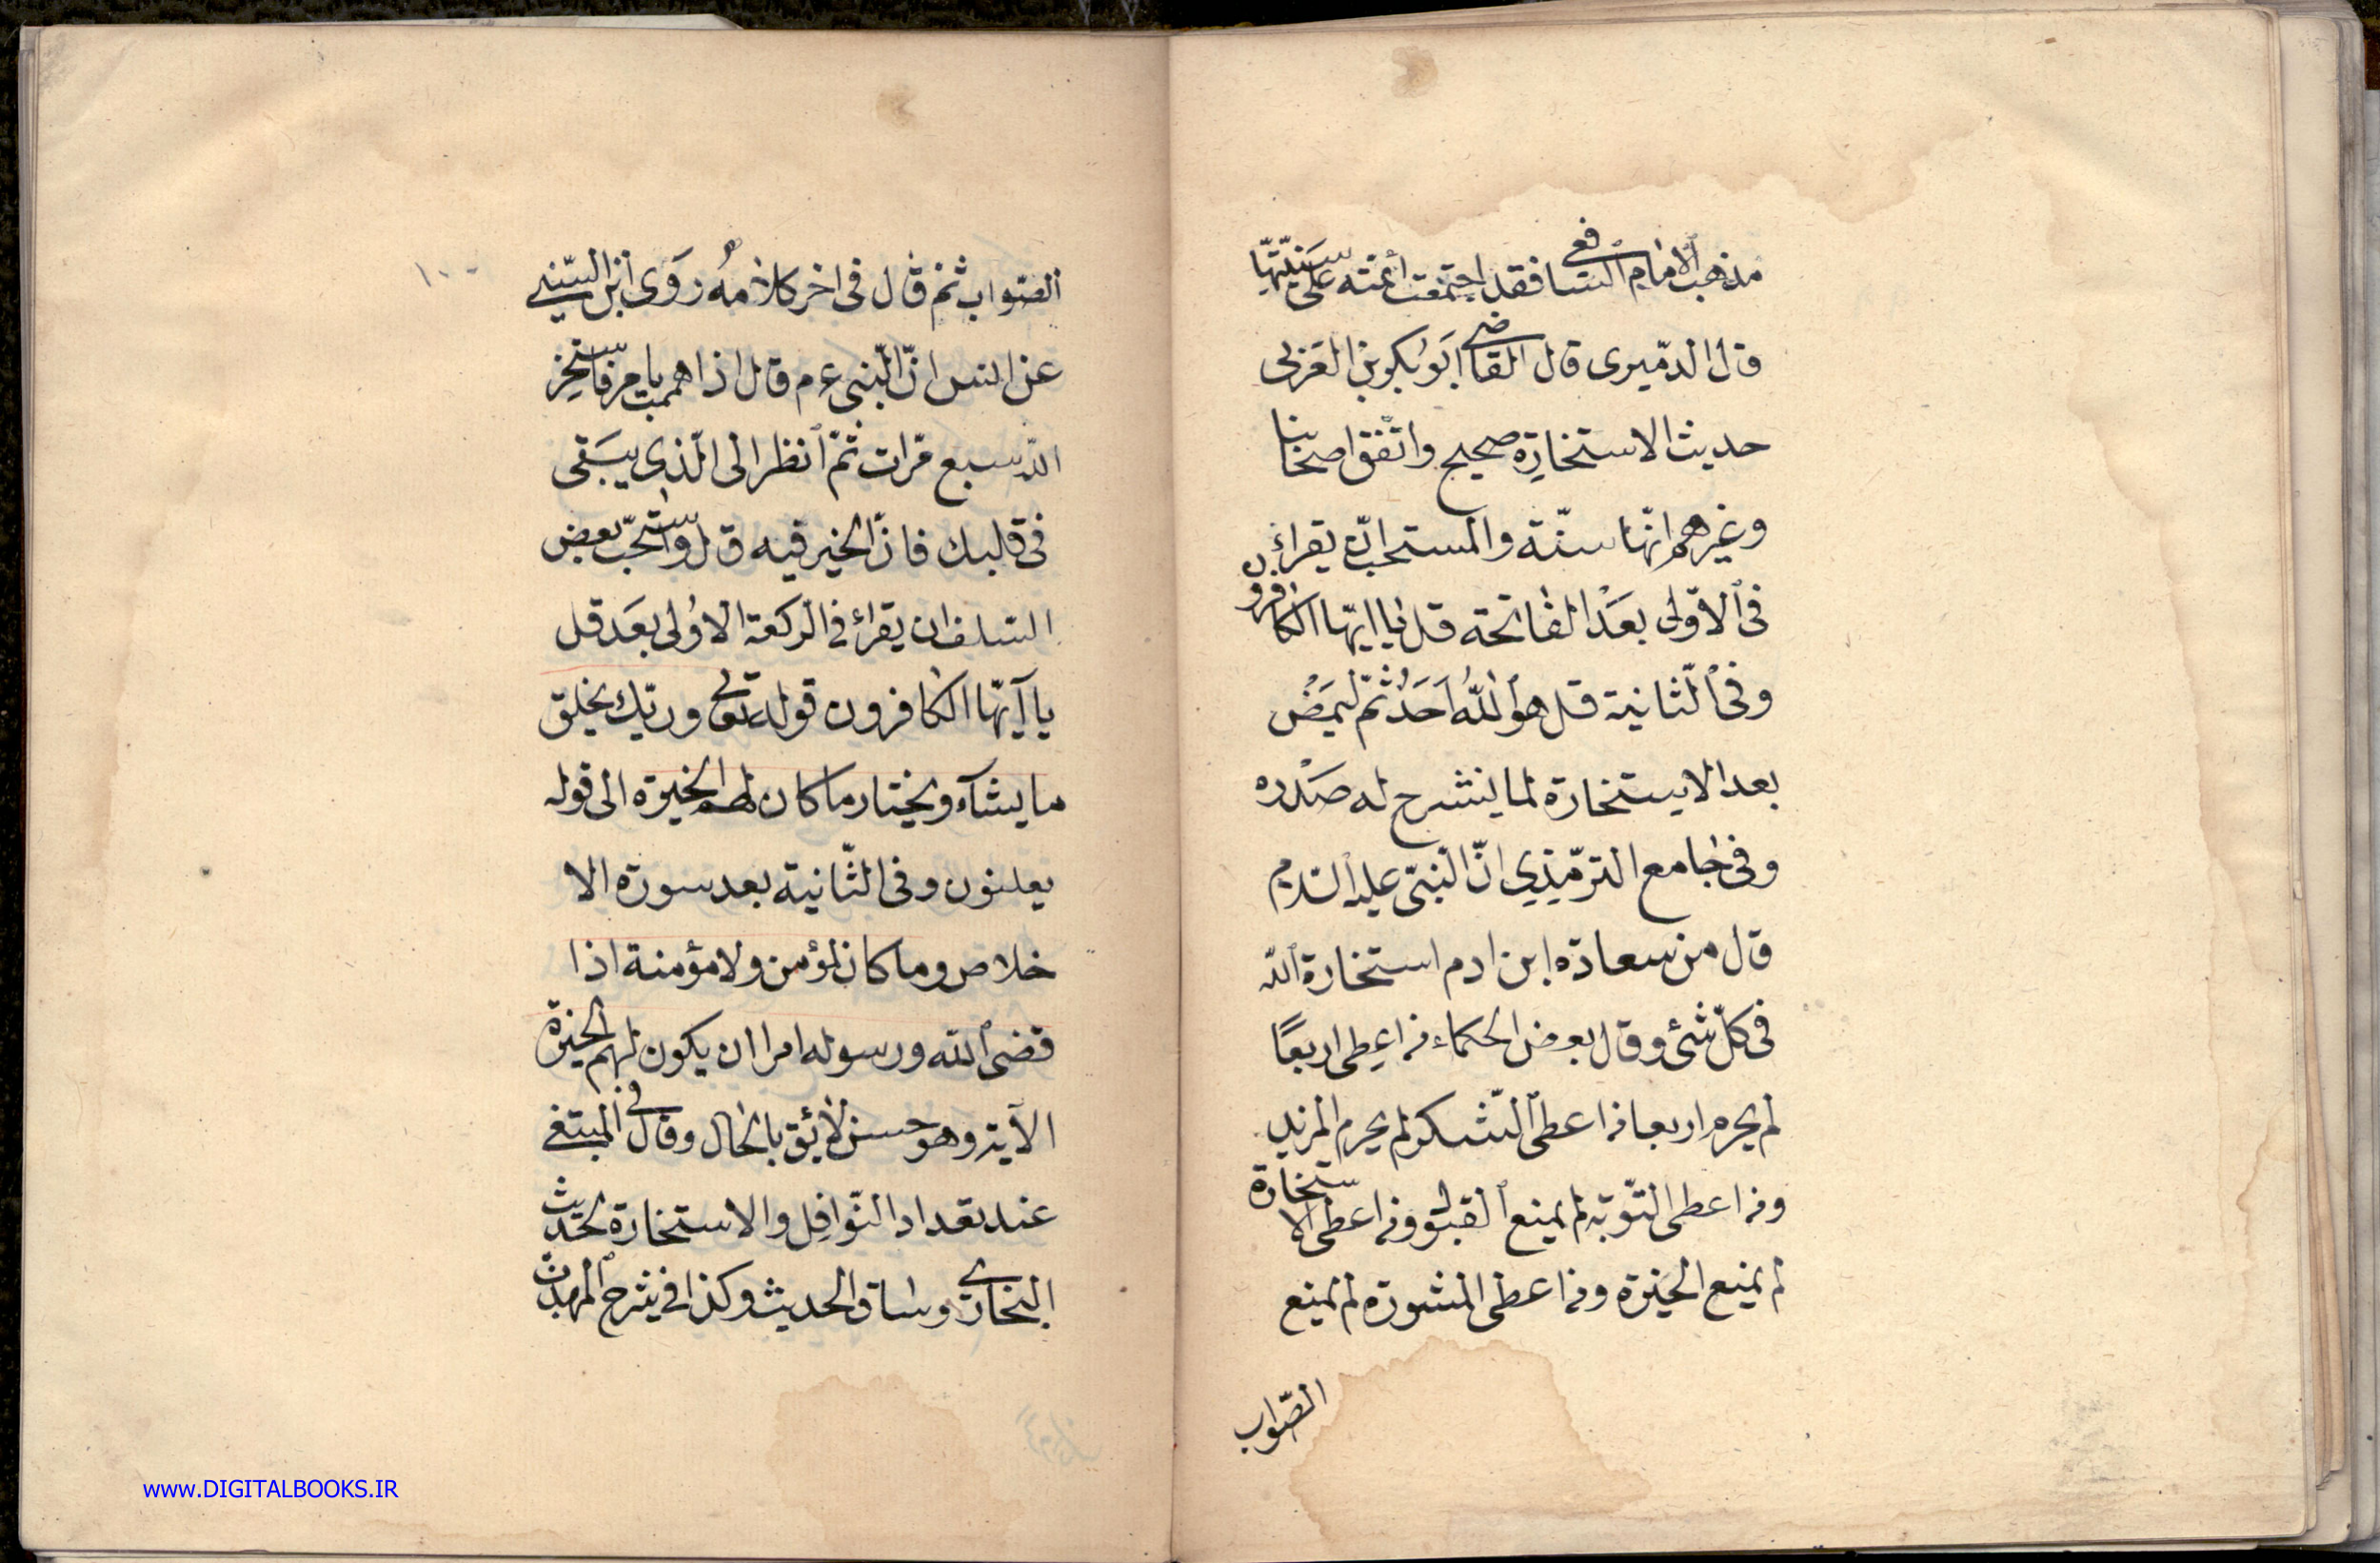 مذهب الامام الشافعى فقد اجتمعت أئمته على سنّيّتها
قال الدمّيرى قال القاضى ابو بكر بن العربى
حديث الاستخارة صحيح واتّفق اصحابنا
وغيرهم انّها سنّة والمستحبّ ان يقرأ
فى الاوّلى بعد الفاتحة قل يا ايّها الكافرون
وفى الثانية قل هو اللّه احد ثمّ ليمض
بعد الاستخارة لما ينشرح له صدره
وفى جامع الترمّيذي انّ النبىّ عليه السّلام
قال من سعادة ابن ادم استخارة اللّه
فى كلّ شئ وقال بعض الحكماء من اعطى اربعًا
لم يحرم اربعا من اعطى الشكر لم يحرم المزيد
ومن اعطى التّوبة لم يمنع القبول ومن اعطى الاستخارة
لم يمنع الخيرة ومن اعطى المشورة لم يمنع
الصّواب
١٠٠
الصّواب ثم قال فى اخر كلامه روى ابن السّنى
عن انس انّ النّبى ع م قال اذا هممت بامر فاستخر
اللّه سبع مرّات ثمّ انظر الى الّذى يسبق
فى قلبك فانّ الخير فيه قال واستحبّ بعض
السلف ان يقرأ فى الركعة الاولى بعد قل
يا آيّها الكافرون قوله تعالى وربّك يخلق
ما يشآء ويختار ما كان لهم الخيرة الى قوله
يعلنون وفى الثّانية بعد سورة الا
خلاص وما كان لمؤمن ولا مؤمنة اذا
قضى اللّه ورسوله امرا ان يكون لهم الخيرة
الآية وهو حسن لائق بالحال وقال فى المبتغى
عند تعداد النّوافل والاستخارة لحديث
البخارى وساق الحديث وكذا فى شرح المهذب
www.DIGITALBOOKS.IR